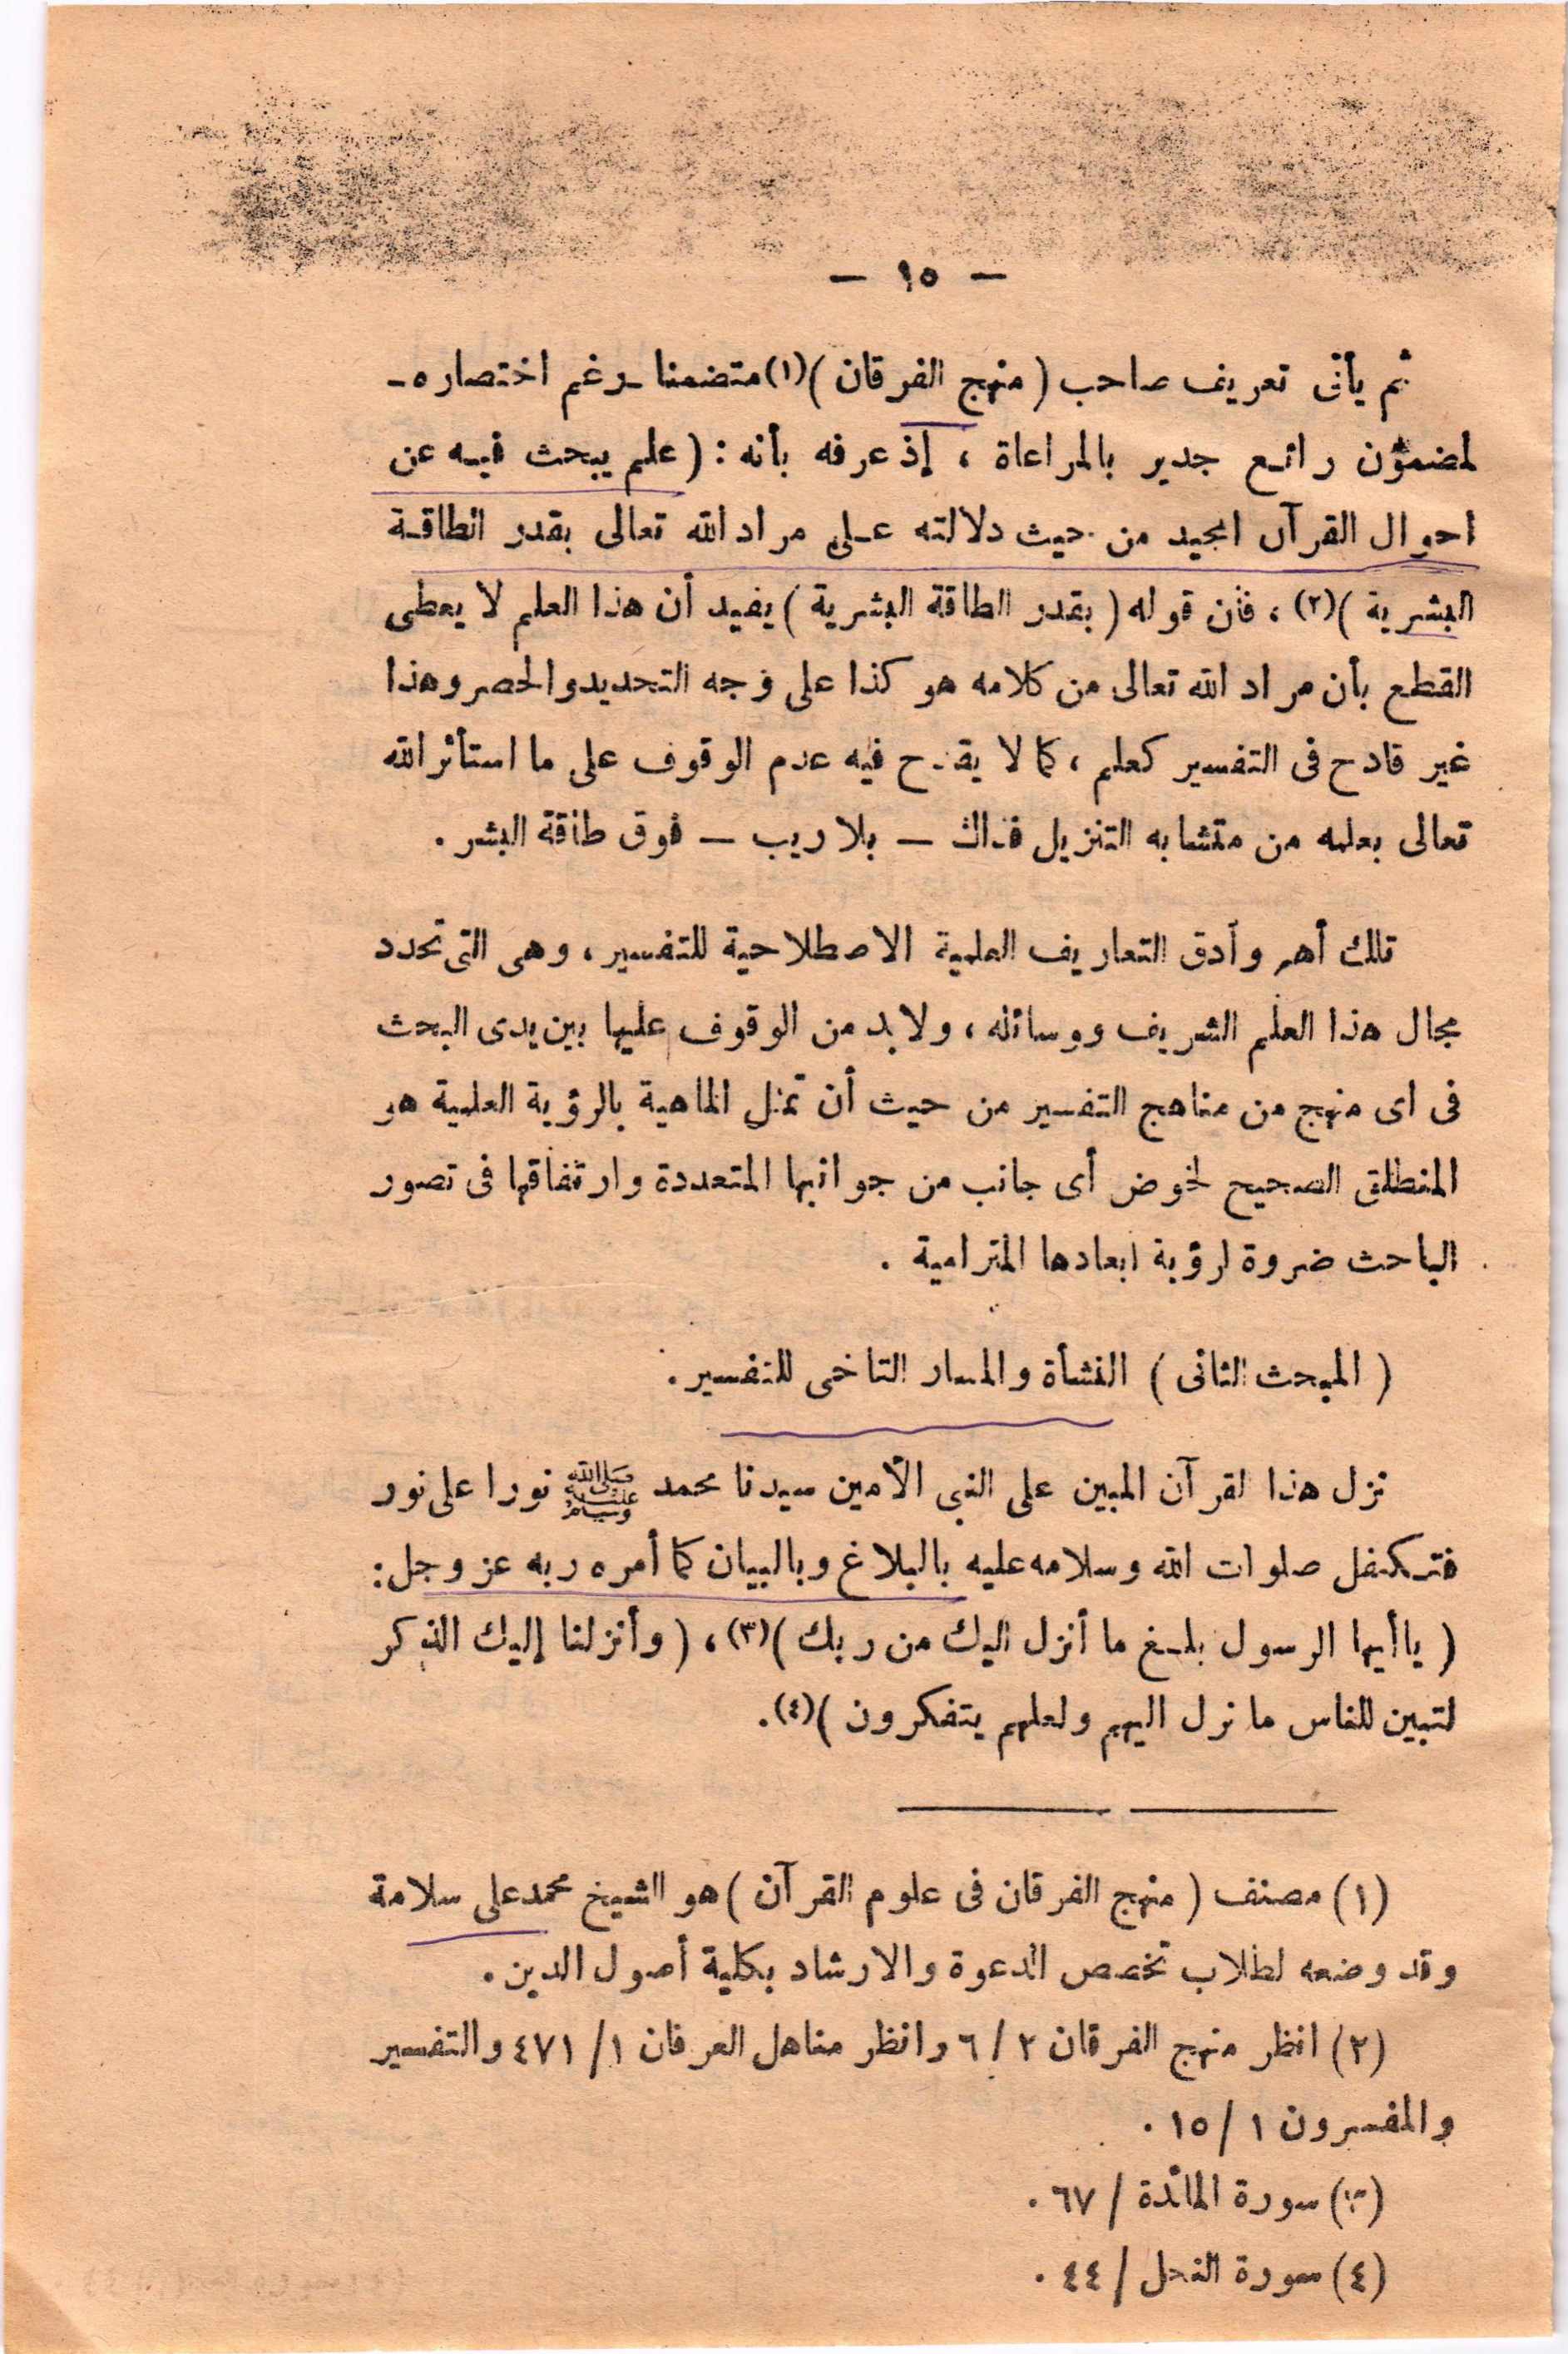 — ١٥ —
ثم يأتى تعريف صاحب ( منهج الفرقان )(١) متضمنا ـ رغم اختصاره ـ
لمضمون رائع جدير بالمراعاة ، إذ عرفه بأنه : ( علم يبحث فيه عن
احوال القرآن المجيد من حيث دلالته على مراد الله تعالى بقدر الطاقة
البشرية )(٢) ، فأن قوله ( بقدر الطاقة البشرية ) يفيد أن هذا العلم لا يعطى
القطع بأن مراد الله تعالى من كلامه هو كذا على وجه التحديد والحصر وهذا
غير قادح فى التفسير كعلم ، كما لا يقدح فيه عدم الوقوف على ما استأثر الله
تعالى بعلمه من متشابه التنزيل فذاك — بلا ريب — فوق طاقة البشر .
تلك أهم وأدق التعاريف العلمية الاصطلاحية للتفسير ، وهى التى تحدد
مجال هذا العلم الشريف ووسائله ، ولا بد من الوقوف عليها بين يدى البحث
فى اى منهج من مناهج التفسير من حيث أن تمثل الماهية بالرؤية العلمية هو
المنطلق الصحيح لخوض أى جانب من جوانبها المتعددة وارتفاقها فى تصور
الباحث ضروة لرؤية ابعادها المترامية .
( المبحث الثانى ) النشأة والمسار التاخى للتفسير .
نزل هذا لقرآن المبين على النبى الأمين سيدنا محمد ﷺ نورا على نور
فتكفل صلوات الله وسلامه عليه بالبلاغ وبالبيان كما أمره ربه عز وجل :
( يا أيها الرسول بلغ ما أنزل اليك من ربك )(٣) ، ( وأنزلنا إليك الذكر
لتبين للناس ما نزل اليهم ولعلهم يتفكرون )(٤) .
(١) مصنف ( منهج الفرقان فى علوم القرآن ) هو الشيخ محمد على سلامة
وقد وضعه لطلاب تخصص الدعوة والارشاد بكلية أصول الدين .
(٢) انظر منهج الفرقان ٢ / ٦ وانظر مناهل العرفان ١ / ٤٧١ والتفسير
والمفسرون ١ / ١٥ .
(٣) سورة المائدة / ٦٧ .
(٤) سورة النحل / ٤٤ .